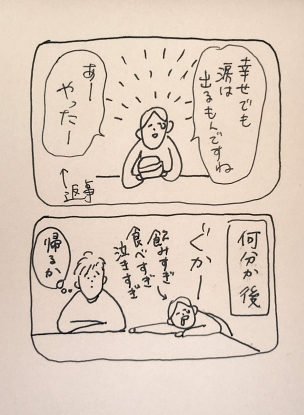 幸せでも
涙は
出るもんですね
あー
やったー
↑
返事
何分か後
ぐかー
飲みすぎ
食べすぎ
泣きすぎ
帰るか